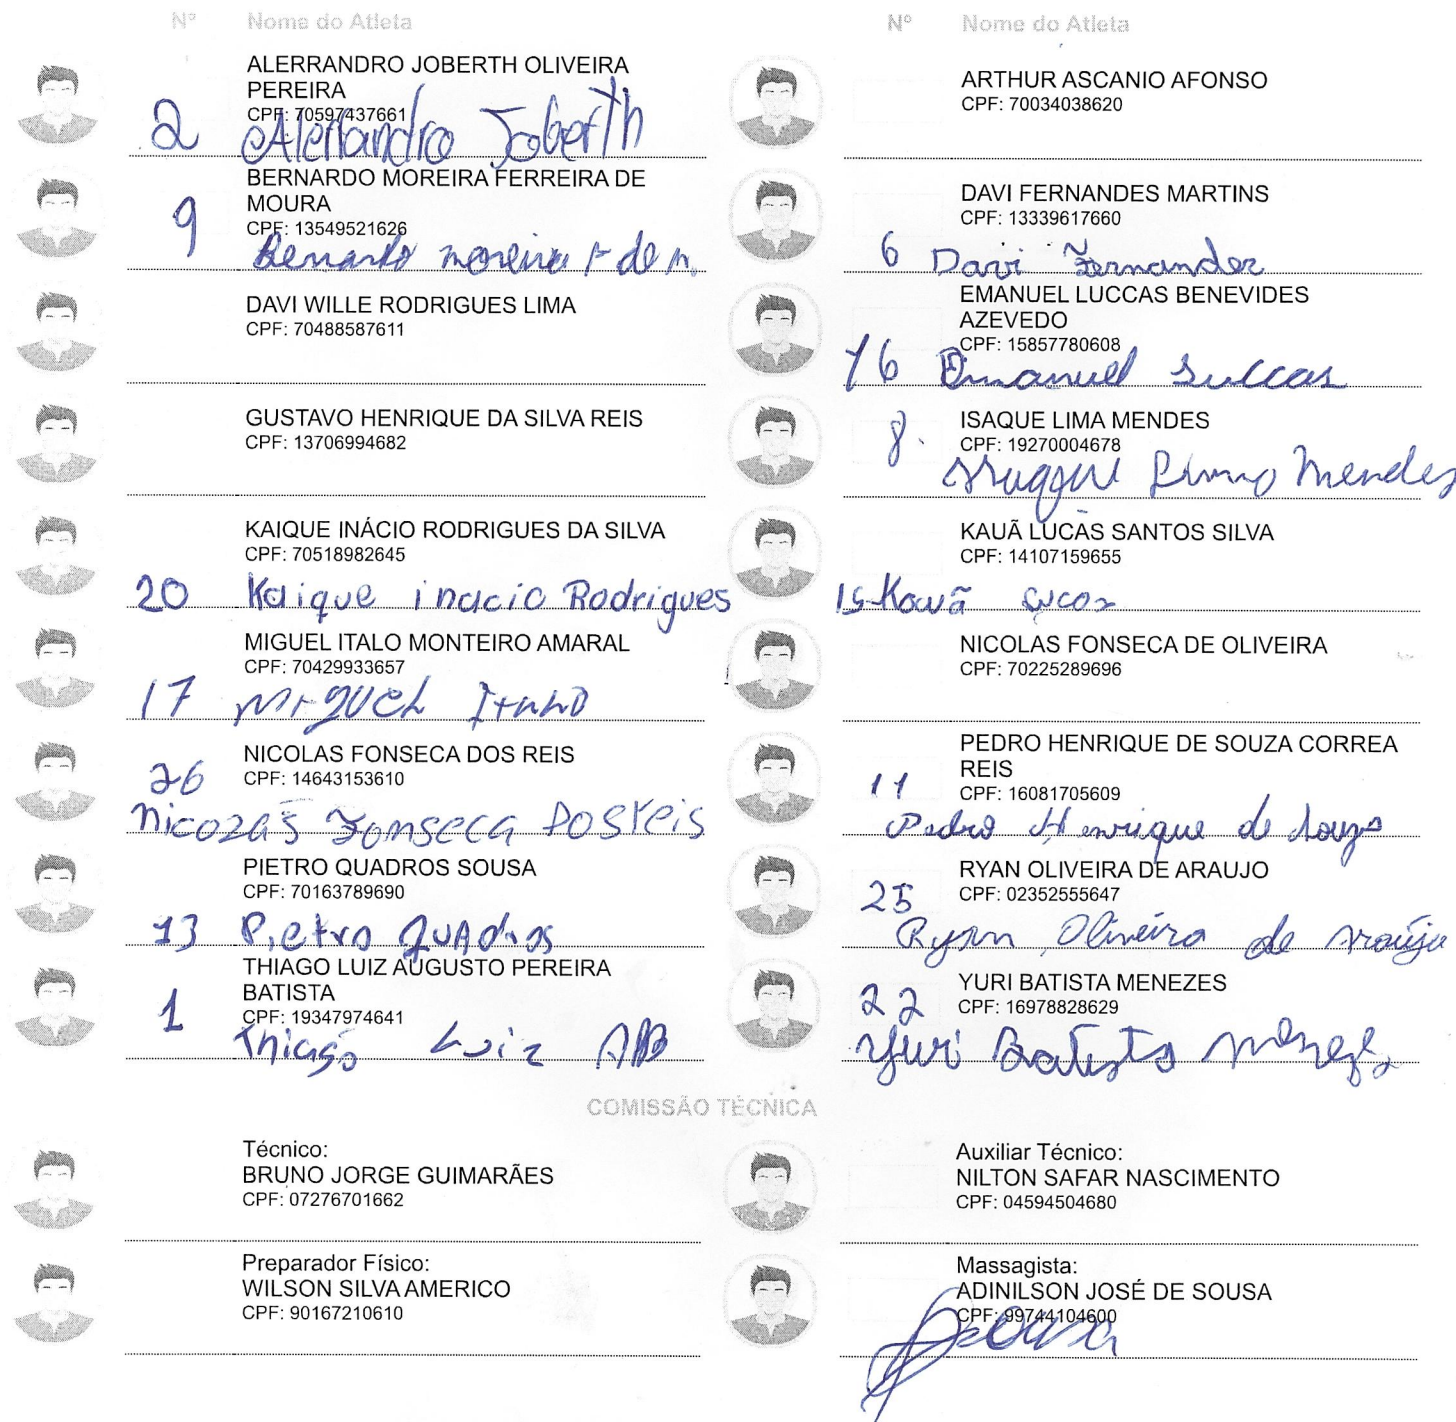 Nº Nome do Atleta
ALERRANDRO JOBERTH OLIVEIRA
PEREIRA
CPF: 70597437661
2 Alerrandro Joberth
BERNARDO MOREIRA FERREIRA DE
MOURA
CPF: 13549521626
9 Bernardo moreira F de m.
DAVI WILLE RODRIGUES LIMA
CPF: 70488587611
GUSTAVO HENRIQUE DA SILVA REIS
CPF: 13706994682
KAIQUE INÁCIO RODRIGUES DA SILVA
CPF: 70518982645
20 Kaique inacio Rodrigues
MIGUEL ITALO MONTEIRO AMARAL
CPF: 70429933657
17 MigUEL ITALO
NICOLAS FONSECA DOS REIS
CPF: 14643153610
26
Nicolas Fonseca Dos reis
PIETRO QUADROS SOUSA
CPF: 70163789690
13 Pietro QUAdros
THIAGO LUIZ AUGUSTO PEREIRA
BATISTA
CPF: 19347974641
1 Thiago Luiz APB
Nº Nome do Atleta
ARTHUR ASCANIO AFONSO
CPF: 70034038620
DAVI FERNANDES MARTINS
CPF: 13339617660
6 Davi Fernandes
EMANUEL LUCCAS BENEVIDES
AZEVEDO
CPF: 15857780608
16 Emanuel Luccas
ISAQUE LIMA MENDES
CPF: 19270004678
8. Lima Mendes
KAUÃ LUCAS SANTOS SILVA
CPF: 14107159655
Kauã Lucas
NICOLAS FONSECA DE OLIVEIRA
CPF: 70225289696
PEDRO HENRIQUE DE SOUZA CORREA
REIS
CPF: 16081705609
11
Pedro Henrique de Souza
RYAN OLIVEIRA DE ARAUJO
CPF: 02352555647
25
Ryan Oliveira de Araújo
YURI BATISTA MENEZES
CPF: 16978828629
22
Yuri Batista Menezes
COMISSÃO TÉCNICA
Técnico:
BRUNO JORGE GUIMARÃES
CPF: 07276701662
Auxiliar Técnico:
NILTON SAFAR NASCIMENTO
CPF: 04594504680
Preparador Físico:
WILSON SILVA AMERICO
CPF: 90167210610
Massagista:
ADINILSON JOSÉ DE SOUSA
CPF: 99744104600
Sousa